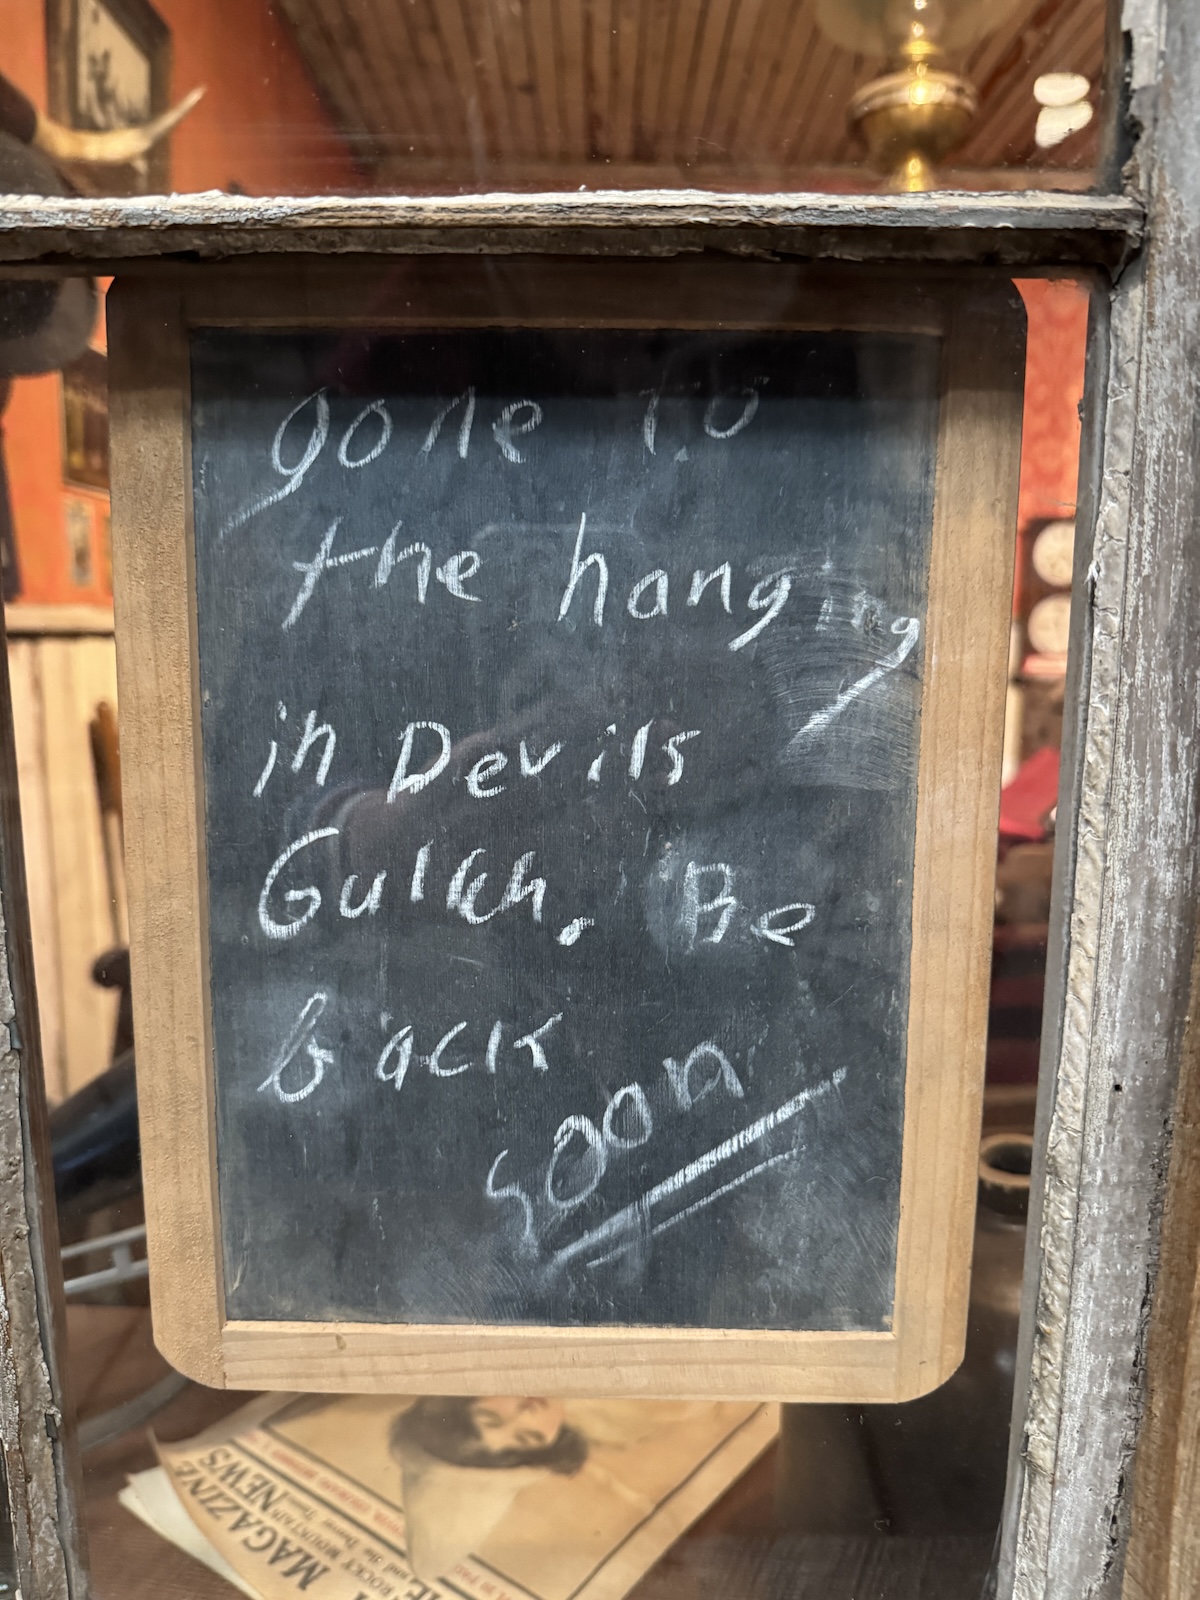 gone To
the hanging
in Devils
Gulch. Be
back
soon
MAGAZINE
ROCKY MOUNTAIN NEWS